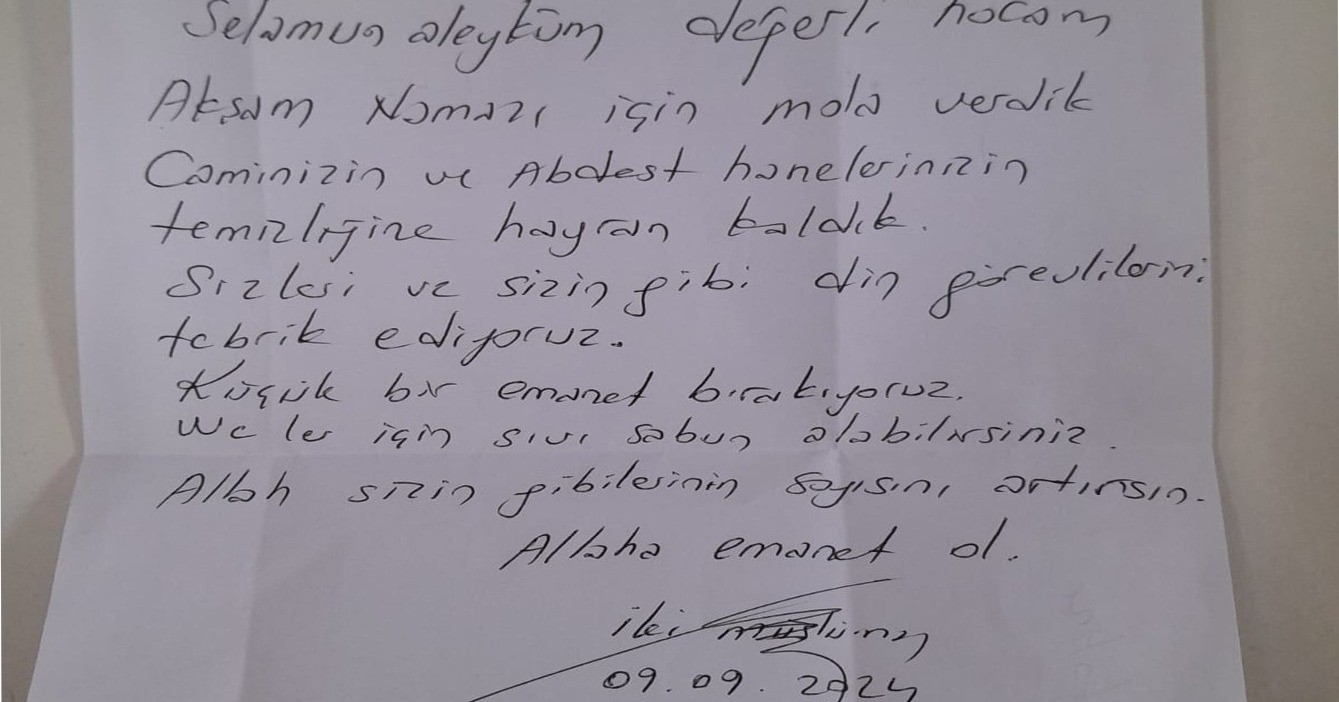 Selamun aleyküm değerli hocam
Akşam Namazı için mola verdik
Caminizin ve Abdest hanelerinizin
temizliğine hayran kaldık.
Sizleri ve sizin gibi din görevlilerini
tebrik ediyoruz.
Küçük bir emanet bırakıyoruz.
Wc ler için sıvı sabun alabilirsiniz.
Allah sizin gibilerinin sayısını artırsın.
Allaha emanet ol.
iki müslüman
09.09.2024